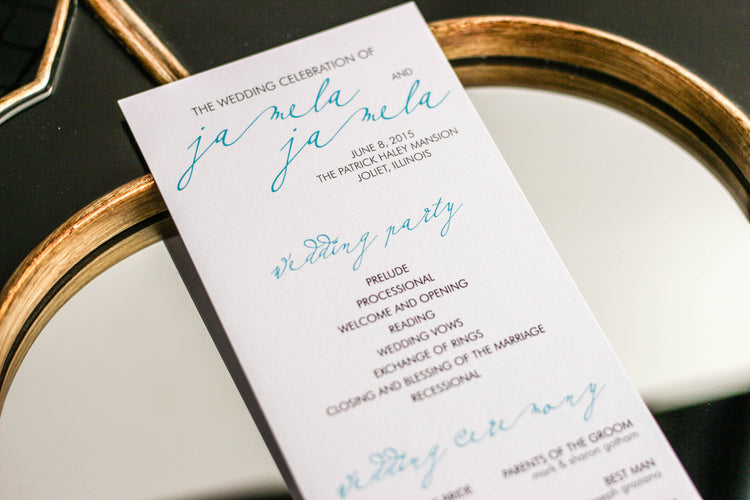 THE WEDDING CELEBRATION OF
jamela AND
jamela
JUNE 8, 2015
THE PATRICK HALEY MANSION
JOLIET, ILLINOIS
wedding party
PRELUDE
PROCESSIONAL
WELCOME AND OPENING
READING
WEDDING VOWS
EXCHANGE OF RINGS
CLOSING AND BLESSING OF THE MARRIAGE
RECESSIONAL
wedding ceremony
BRIDE PARENTS OF THE GROOM
mark & sharon gotham
BEST MAN
graziano